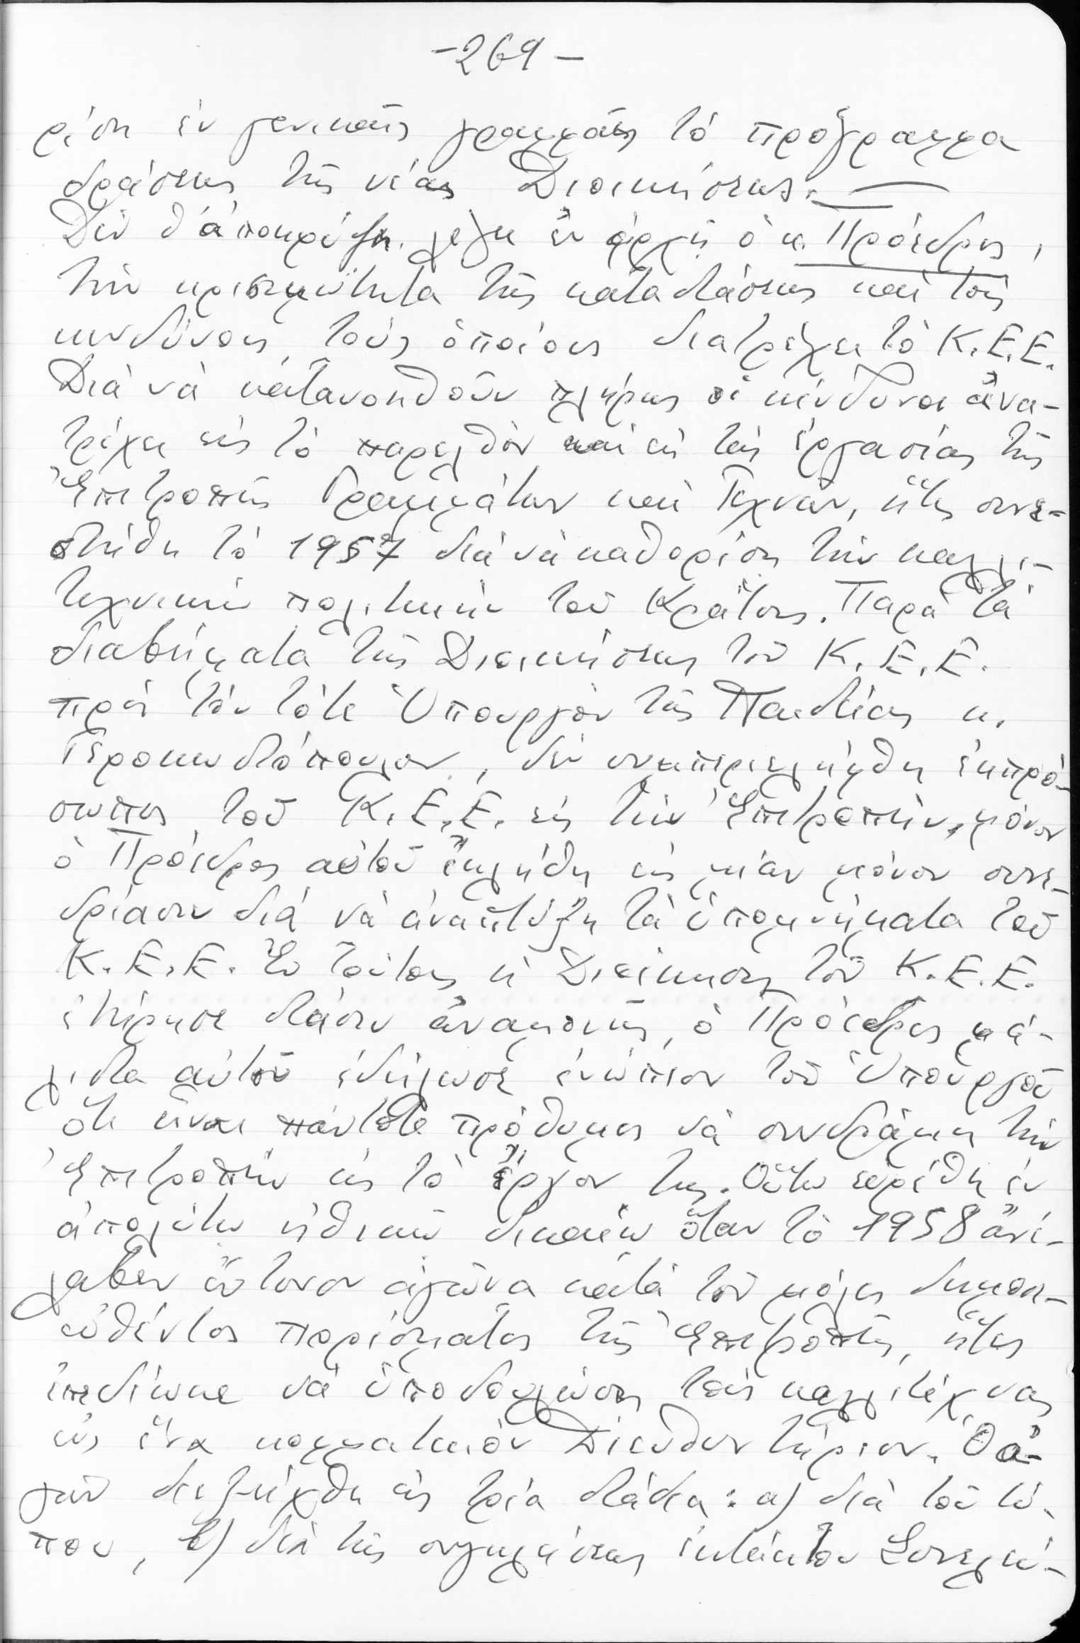 -269-
ρίση ἐν γενικαῖς γραμμαῖς τό πρόγραμμα
δράσεως τῆς νέας Διοικήσεως.
Δέν θ' ἀποκρύψη, λέγει ἐν ἀρχῇ ὁ κ. Πρόεδρος,
τήν κρισιμότητα τῆς καταστάσεως καί τούς
κινδύνους, τούς ὁποίους διατρέχει τό Κ.Ε.Ε.
Διά νά κατανοηθοῦν πλήρως οἱ κίνδυνοι ἀνα-
τρέχει εἰς τό παρελθόν καί εἰς τάς ἐργασίας τῆς
Ἐπιτροπῆς Γραμμάτων καί Τεχνῶν, ἥτις συνε-
στήθη τό 1957 διά νά καθορίση τήν καλλι-
τεχνικήν πολιτικήν τοῦ Κράτους. Παρά τά
διαβήματα τῆς Διοικήσεως τοῦ Κ.Ε.Ε.
πρός τόν τότε Ὑπουργόν τῆς Παιδείας κ.
Γεροκωστόπουλον, δέν συμπεριελήφθη ἐκπρό-
σωπος τοῦ Κ.Ε.Ε. εἰς τήν Ἐπιτροπήν, μόνον
ὁ Πρόεδρος αὐτοῦ ἐκλήθη εἰς μίαν μόνον συνε-
δρίασιν διά νά ἀναπτύξη τά ὑπομνήματα τοῦ
Κ.Ε.Ε. Ἐν τούτοις ἡ Διοίκησις τοῦ Κ.Ε.Ε.
ἐτήρησε στάσιν ἀναμονῆς, ὁ Πρόεδρος μά-
λιστα αὐτοῦ ἐδήλωσε ἐνώπιον τοῦ Ὑπουργοῦ
ὅτι εἶναι πάντοτε πρόθυμος νά συνδράμη τήν
Ἐπιτροπήν εἰς τό ἔργον της. Οὕτω εὑρέθη ἐν
ἀπολύτω ἠθικῶ δικαίω ὅταν τό 1958 ἀνέ-
λαβεν ἔντονον ἀγῶνα κατά τοῦ μόλις δημοσι-
ευθέντος πορίσματος τῆς Ἐπιτροπῆς, ἥτις
ἐπεδίωκε νά ὑποδουλώση τούς καλλιτέχνας
εἰς ἕνα κομματικόν Διευθυντήριον. Ὁ ἀ-
γών διεξήχθη εἰς τρία στάδια: α) διά τοῦ τύ-
που, β) διά τῆς συγκλήσεως ἐκτάκτου Συνελεύ-